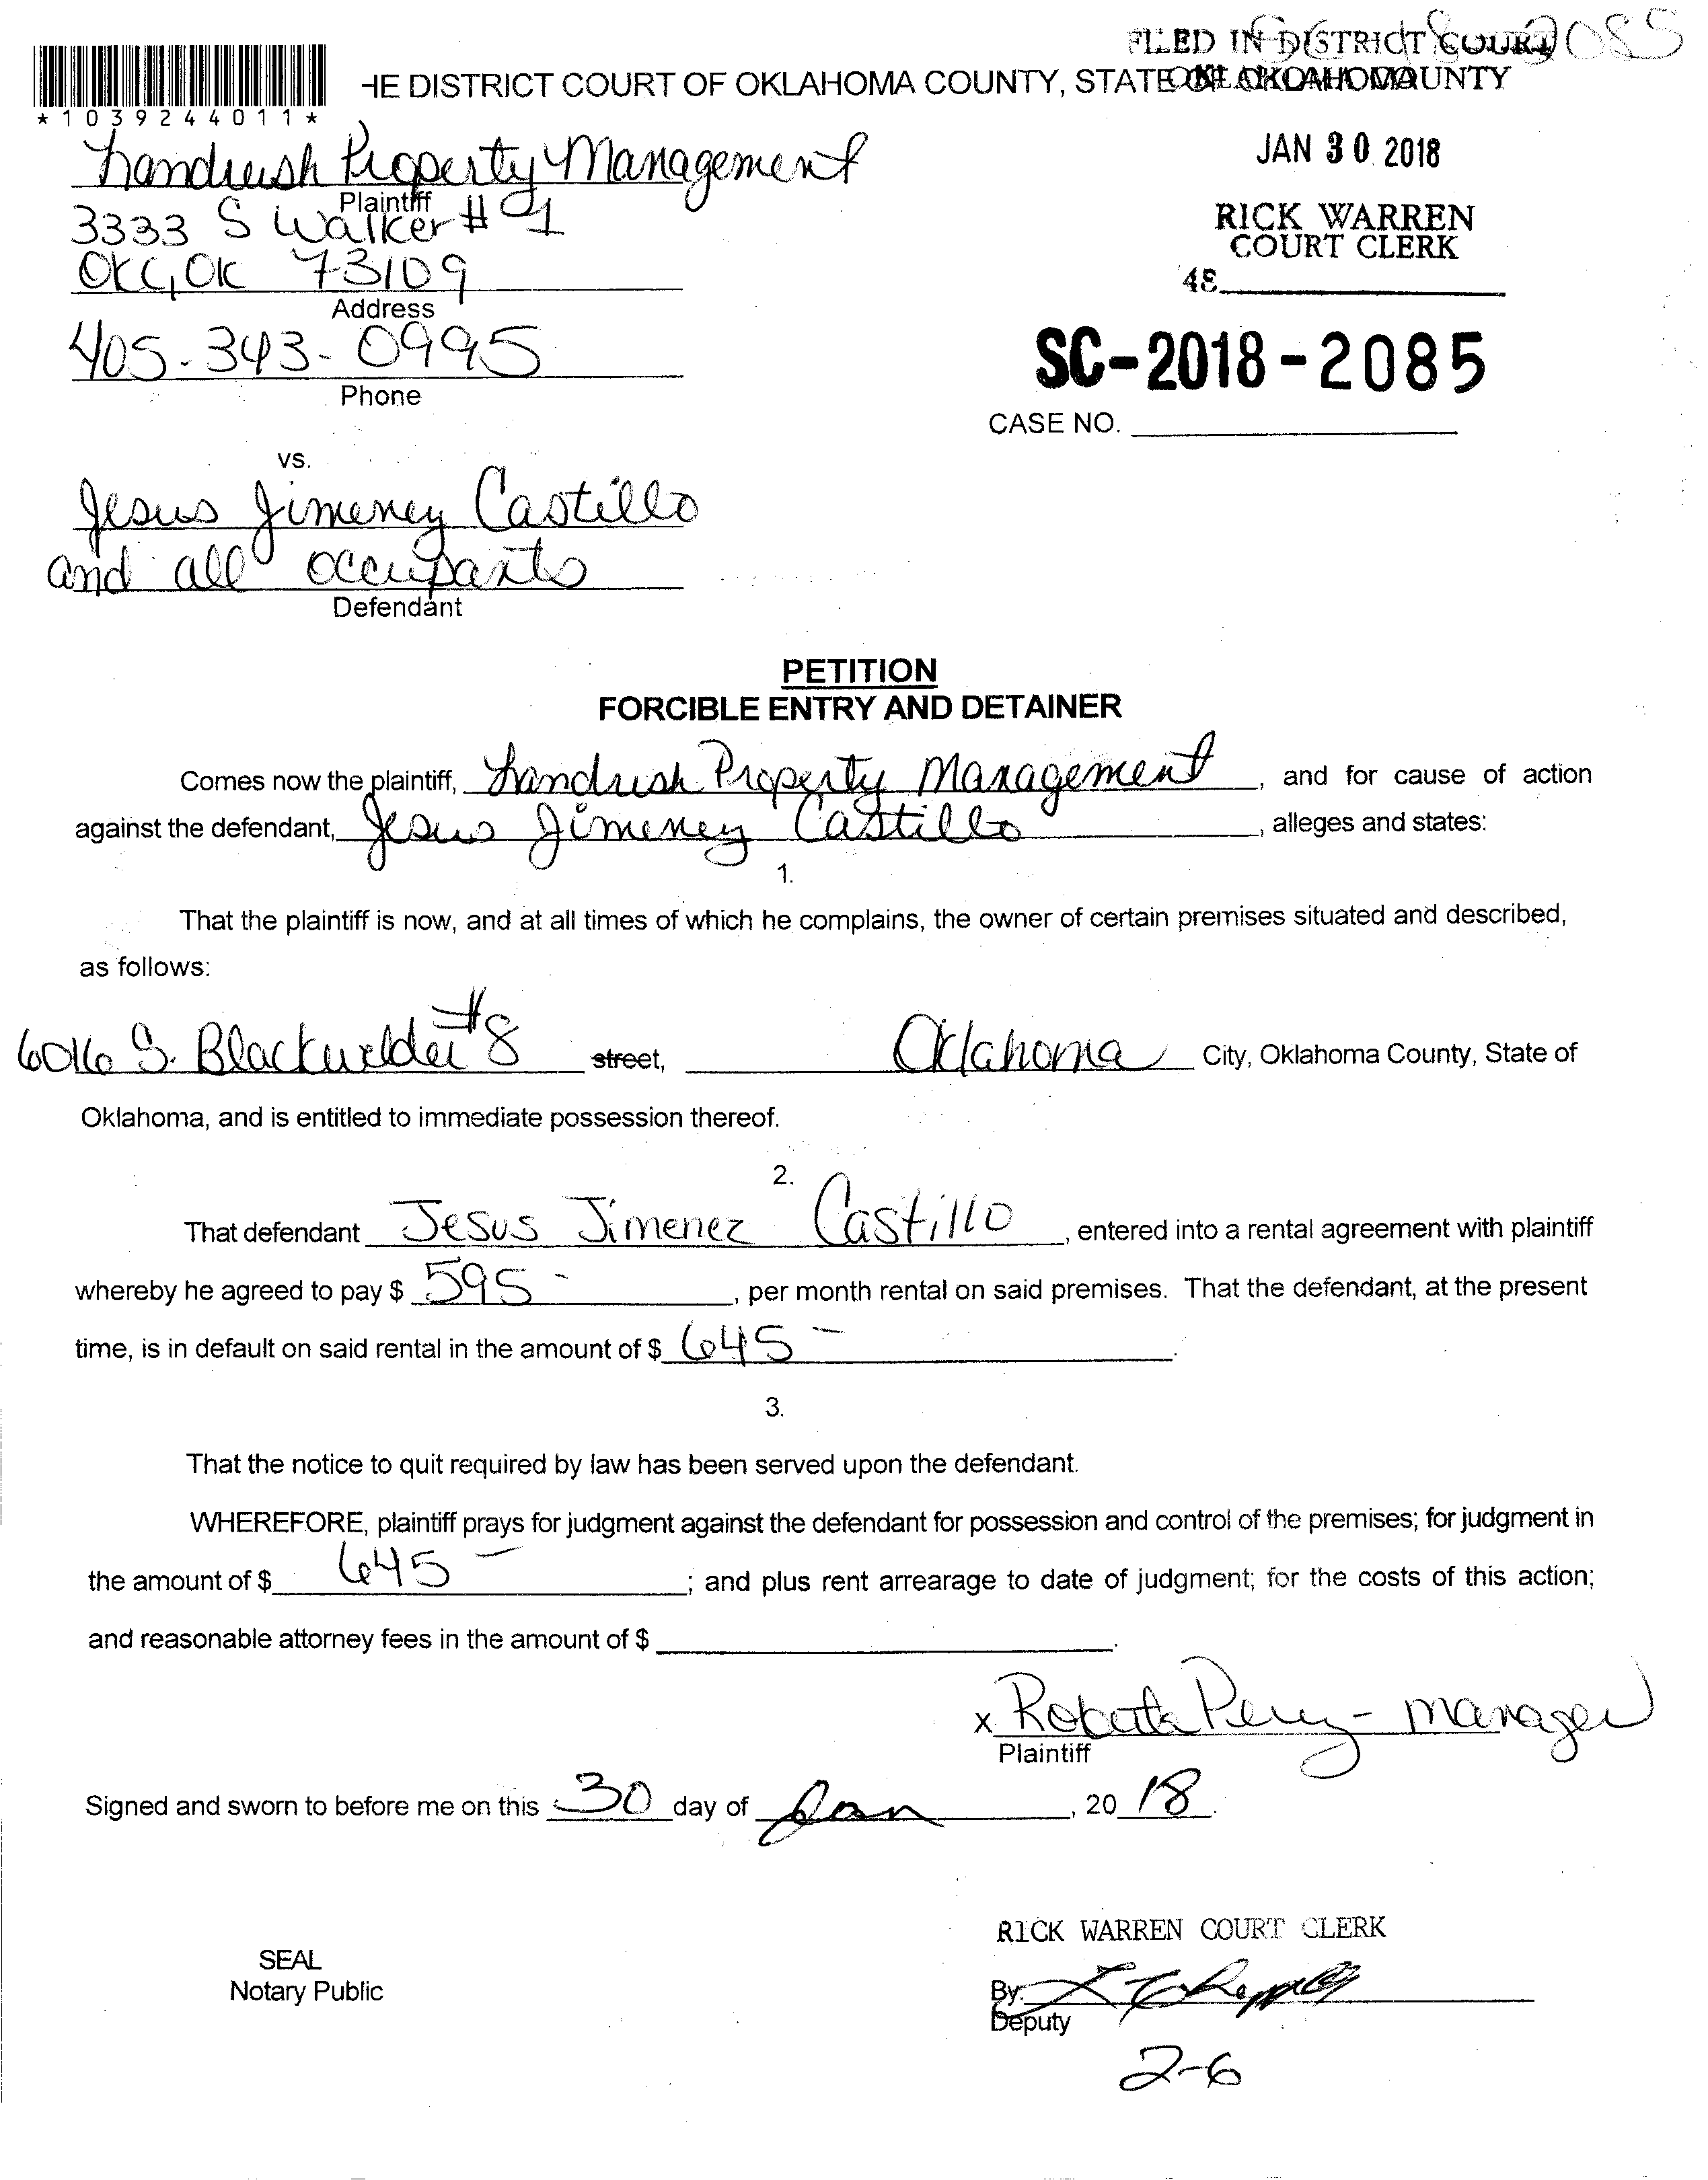 FILED IN DISTRICT COURT
OKLAHOMA COUNTY
-HE DISTRICT COURT OF OKLAHOMA COUNTY, STATE OF OKLAHOMA
*1039244011*
JAN 30 2018
RICK WARREN
COURT CLERK
48
Landrush Property Management
Plaintiff
3333 S Walker #1
OKC, OK 73109
Address
405-343-0995
Phone
SC-2018-2085
CASE NO.
vs.
Jesus Jimenez Castillo
and all occupants
Defendant
PETITION
FORCIBLE ENTRY AND DETAINER
Comes now the plaintiff, Landrush Property Management, and for cause of action
against the defendant, Jesus Jimenez Castillo, alleges and states:
1.
That the plaintiff is now, and at all times of which he complains, the owner of certain premises situated and described,
as follows:
6016 S. Blackwelder #8 street, Oklahoma City, Oklahoma County, State of
Oklahoma, and is entitled to immediate possession thereof.
2.
That defendant Jesus Jimenez Castillo, entered into a rental agreement with plaintiff
whereby he agreed to pay $ 595-, per month rental on said premises. That the defendant, at the present
time, is in default on said rental in the amount of $ 645-.
3.
That the notice to quit required by law has been served upon the defendant.
WHEREFORE, plaintiff prays for judgment against the defendant for possession and control of the premises; for judgment in
the amount of $ 645-; and plus rent arrearage to date of judgment; for the costs of this action;
and reasonable attorney fees in the amount of $ .
x Roberta Perez - manager
Plaintiff
Signed and sworn to before me on this 30 day of Jan, 20 18.
RICK WARREN COURT CLERK
SEAL
Notary Public
By:
Deputy
2-6